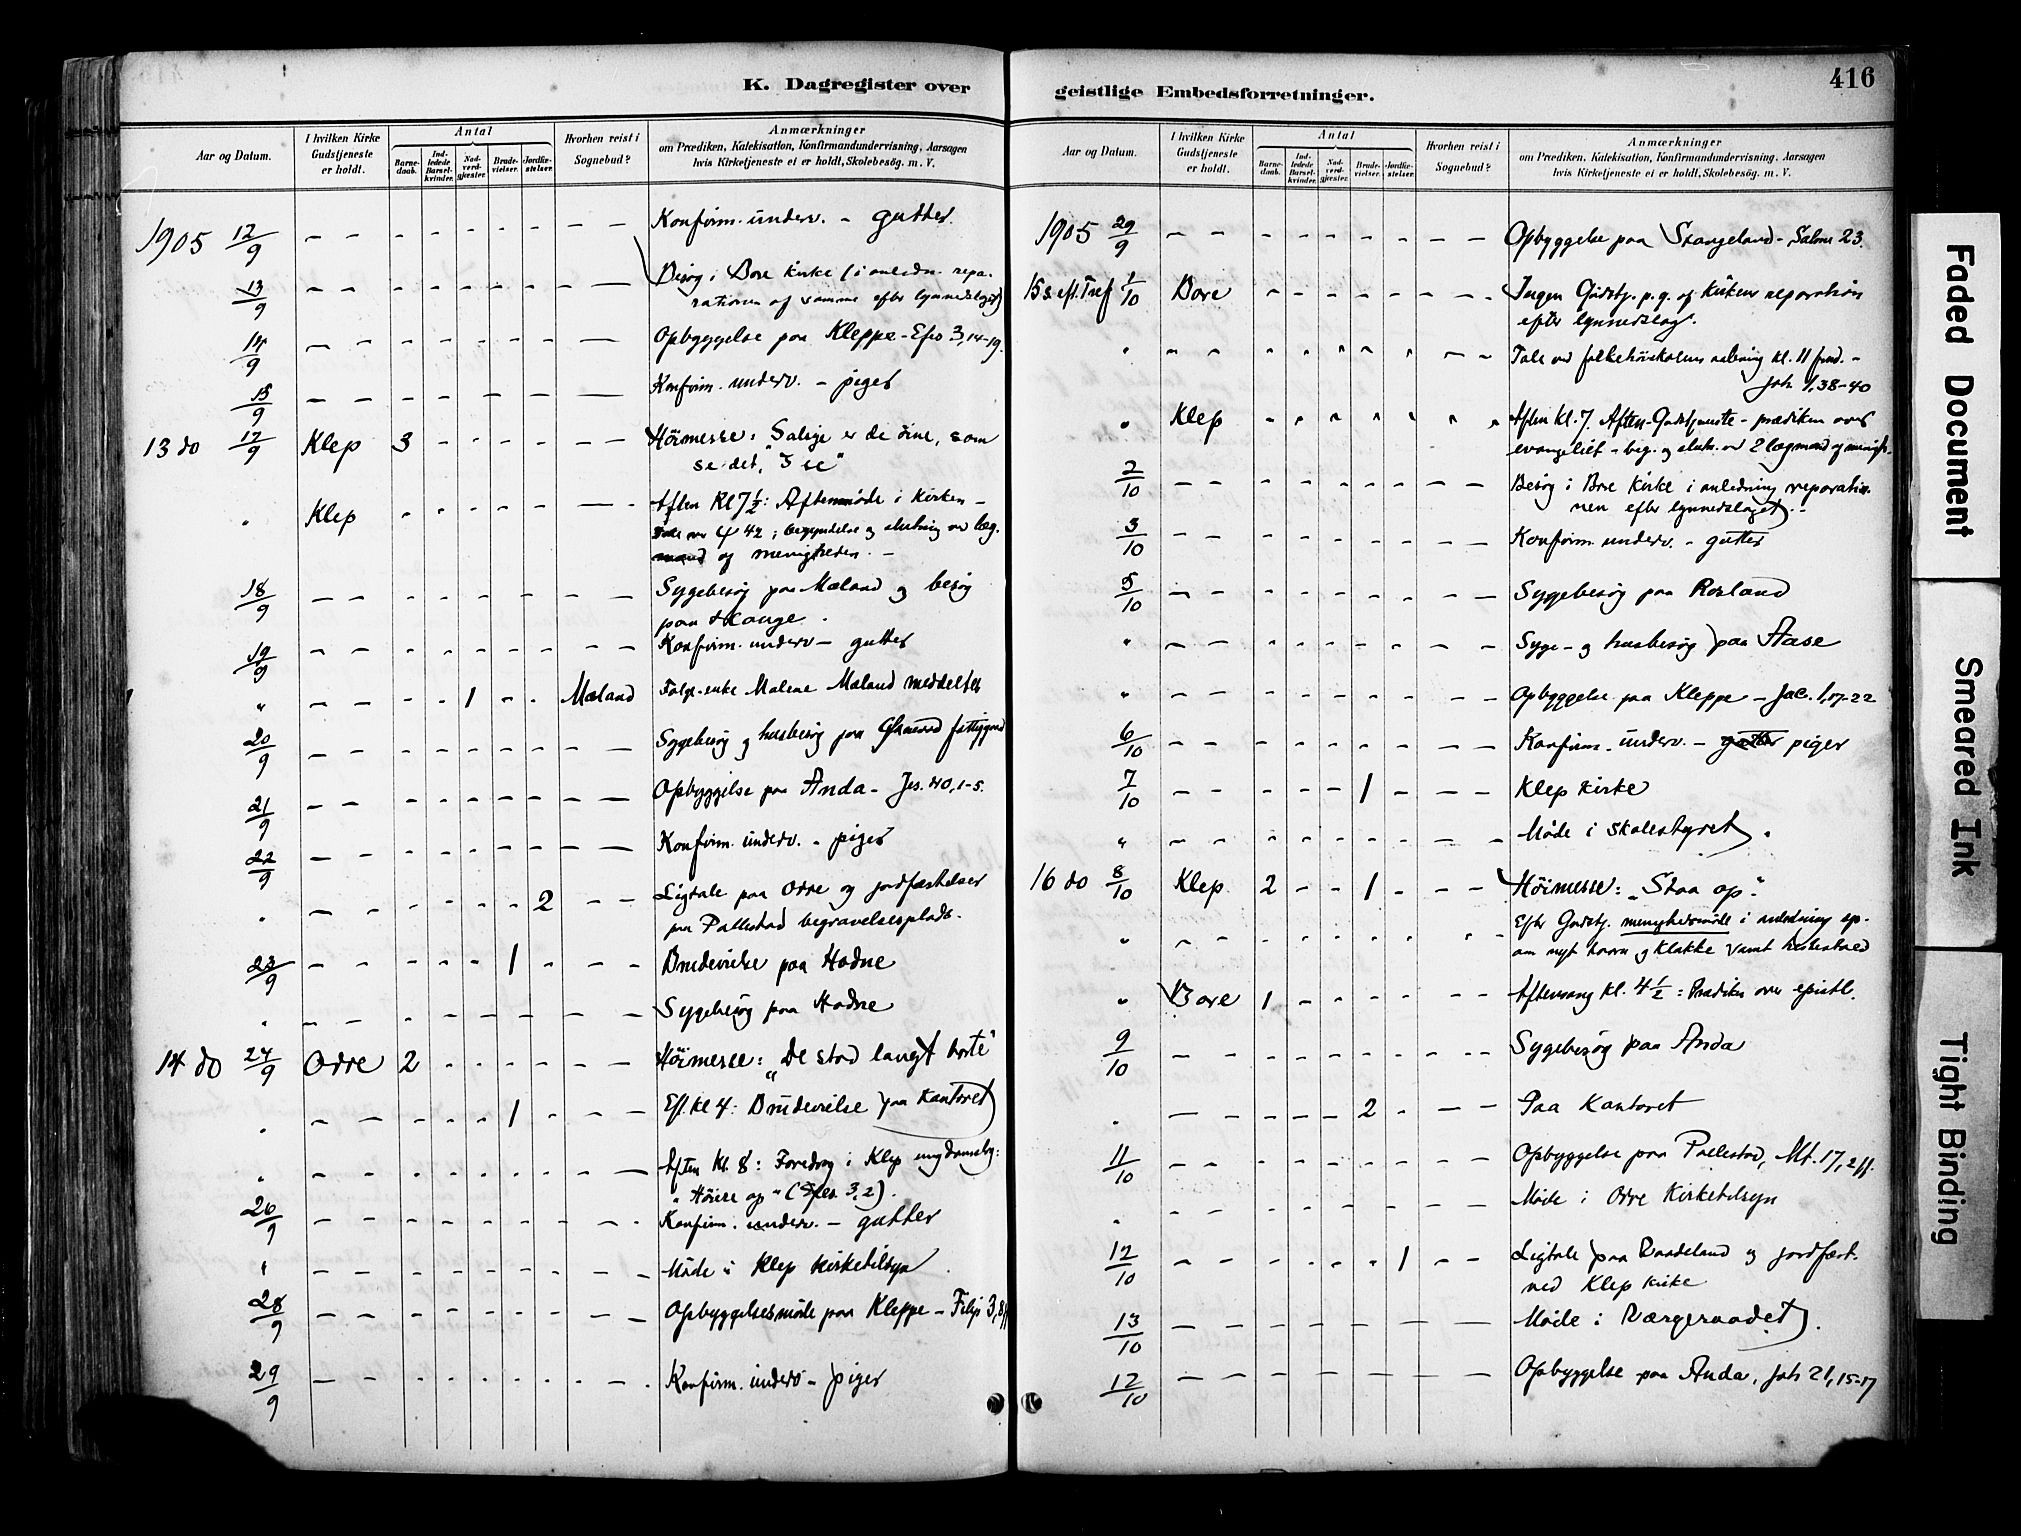 K. Dagregister over
Aar og Datum.
I hvilken Kirke Gudstjeneste er holdt.
Antal
Barnedaab.
Indledede Barselkvinder.
Nadverdgjæster.
Brudevielser.
Jordfæstelser.
Hvorhen reist i Sognebud?
Anmærkninger
om Prædiken, Katekisation, Konfirmandundervisning, Aarsagen
hvis Kirketjeneste ei er holdt, Skolebesög. m. V.
1905 12/9 Konfirm. underv. - gutter.
13/9 Besøg i Bore kirke (i anledn. repa-
rationen af samme efter lynnedslaget)
14/9 Opbyggelse paa Kleppe - Efes 3,14-19.
15/9 Konfirm. underv. - piger
13 do 17/9 Klep 3 Høimesse: Salige er de öine, som
se det, "I se"
" Klep Aften Kl 7 1/2: Aftenmøde i kirken -
Tale over ψ 42; begyndelse og slutning ved læg-
mand og menigheden. -
18/9 Sygebesøg paa Mæland og besøg
paa Hauge.
19/9 Konfirm. underv - gutter
" 1 Mæland Følge-enke Malene Mæland meddeltes
20/9 Sygebesøg og husbesøg paa fattiggaard
21/9 Opbyggelse paa Anda - Jes. 40,1-5.
22/9 Konfirm. underv. - piger
" 2 Ligtale paa Orre og jordfæstelser
paa Pallestad begravelsesplads.
23/9 1 Brudevielse paa Hodne
" Sygebesøg paa Hodne
14 do 24/9 Orre 2 Høimesse: "De stod langt borte"
" 1 Eft. kl 4: Brudevielse paa Kantoret
" Aften Kl. 8: Foredrag i Klep ungdomslag:
"Høiere op" (Efes. 3,2).
26/9 Konfirm. underv. - gutter
" Møde i Klep kirketilsyn
28/9 Opbyggelsesmøde paa Kleppe - Filip 3,8ff
29/9 Konfirm. underv - piger
geistlige Embedsforretninger.
416
Aar og Datum.
I hvilken Kirke Gudstjeneste er holdt.
Antal
Barnedaab.
Indledede Barselkvinder.
Nadverdgjæster.
Brudevielser.
Jordfæstelser.
Hvorhen reist i Sognebud?
Anmærkninger
om Prædiken, Katekisation, Konfirmandundervisning, Aarsagen
hvis Kirketjeneste ei er holdt, Skolebesög. m. V.
1905 29/9 Opbyggelse paa Stangeland - Salme 23.
15 s. eft. Tref 1/10 Bore Ingen Gudstj. p. g. af kirkens reparation
efter lynnedslag.
" Tale ved folkehøiskolens aabning kl. 11 fmd. -
Joh 1,38-40
" Klep Aften Kl. 7. Aften-Gudstjeneste - prædiken over
evangeliet - beg. og slutn. ved 2 lægmænd og menigh.
2/10 Besøg i Bore kirke i anledning reparatio-
nen efter lynnedslaget. -
3/10 Konfirm. underv. - gutter
5/10 Sygebesøg paa Rosland
" Syge- og husbesøg paa Aase
" Opbyggelse paa Kleppe - Jac. 1,17-22
6/10 Konfirm. underv. - gutter piger
7/10 1 Klep kirke
" Møde i skolestyret.
16 do 8/10 Klep 2 1 Høimesse: "Staa op".
" Efter Gudstj. menighedsmøde i anledning sp.
om nyt taarn og klokke samt kirkestaed
" Bore 1 Aftensang kl. 4 1/2: Prædiken over epistl.
9/10 Sygebesøg paa Anda
" 2 Paa Kantoret
11/10 Opbyggelse paa Pallestad, Mt. 17,2ff.
" Møde i Orre Kirketilsyn
12/10 1 Ligtale paa Braadeland og jordfæst.
ved Klep kirke
13/10 Møde i Værgeraadet.
12/10 Opbyggelse paa Anda, Joh 21,15-17
Faded Document
Smeared Ink
Tight Binding